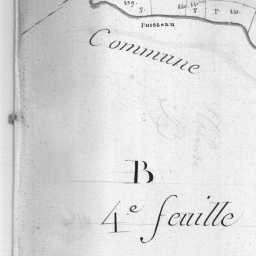 Ruisseau
Commune
B
4e feuille